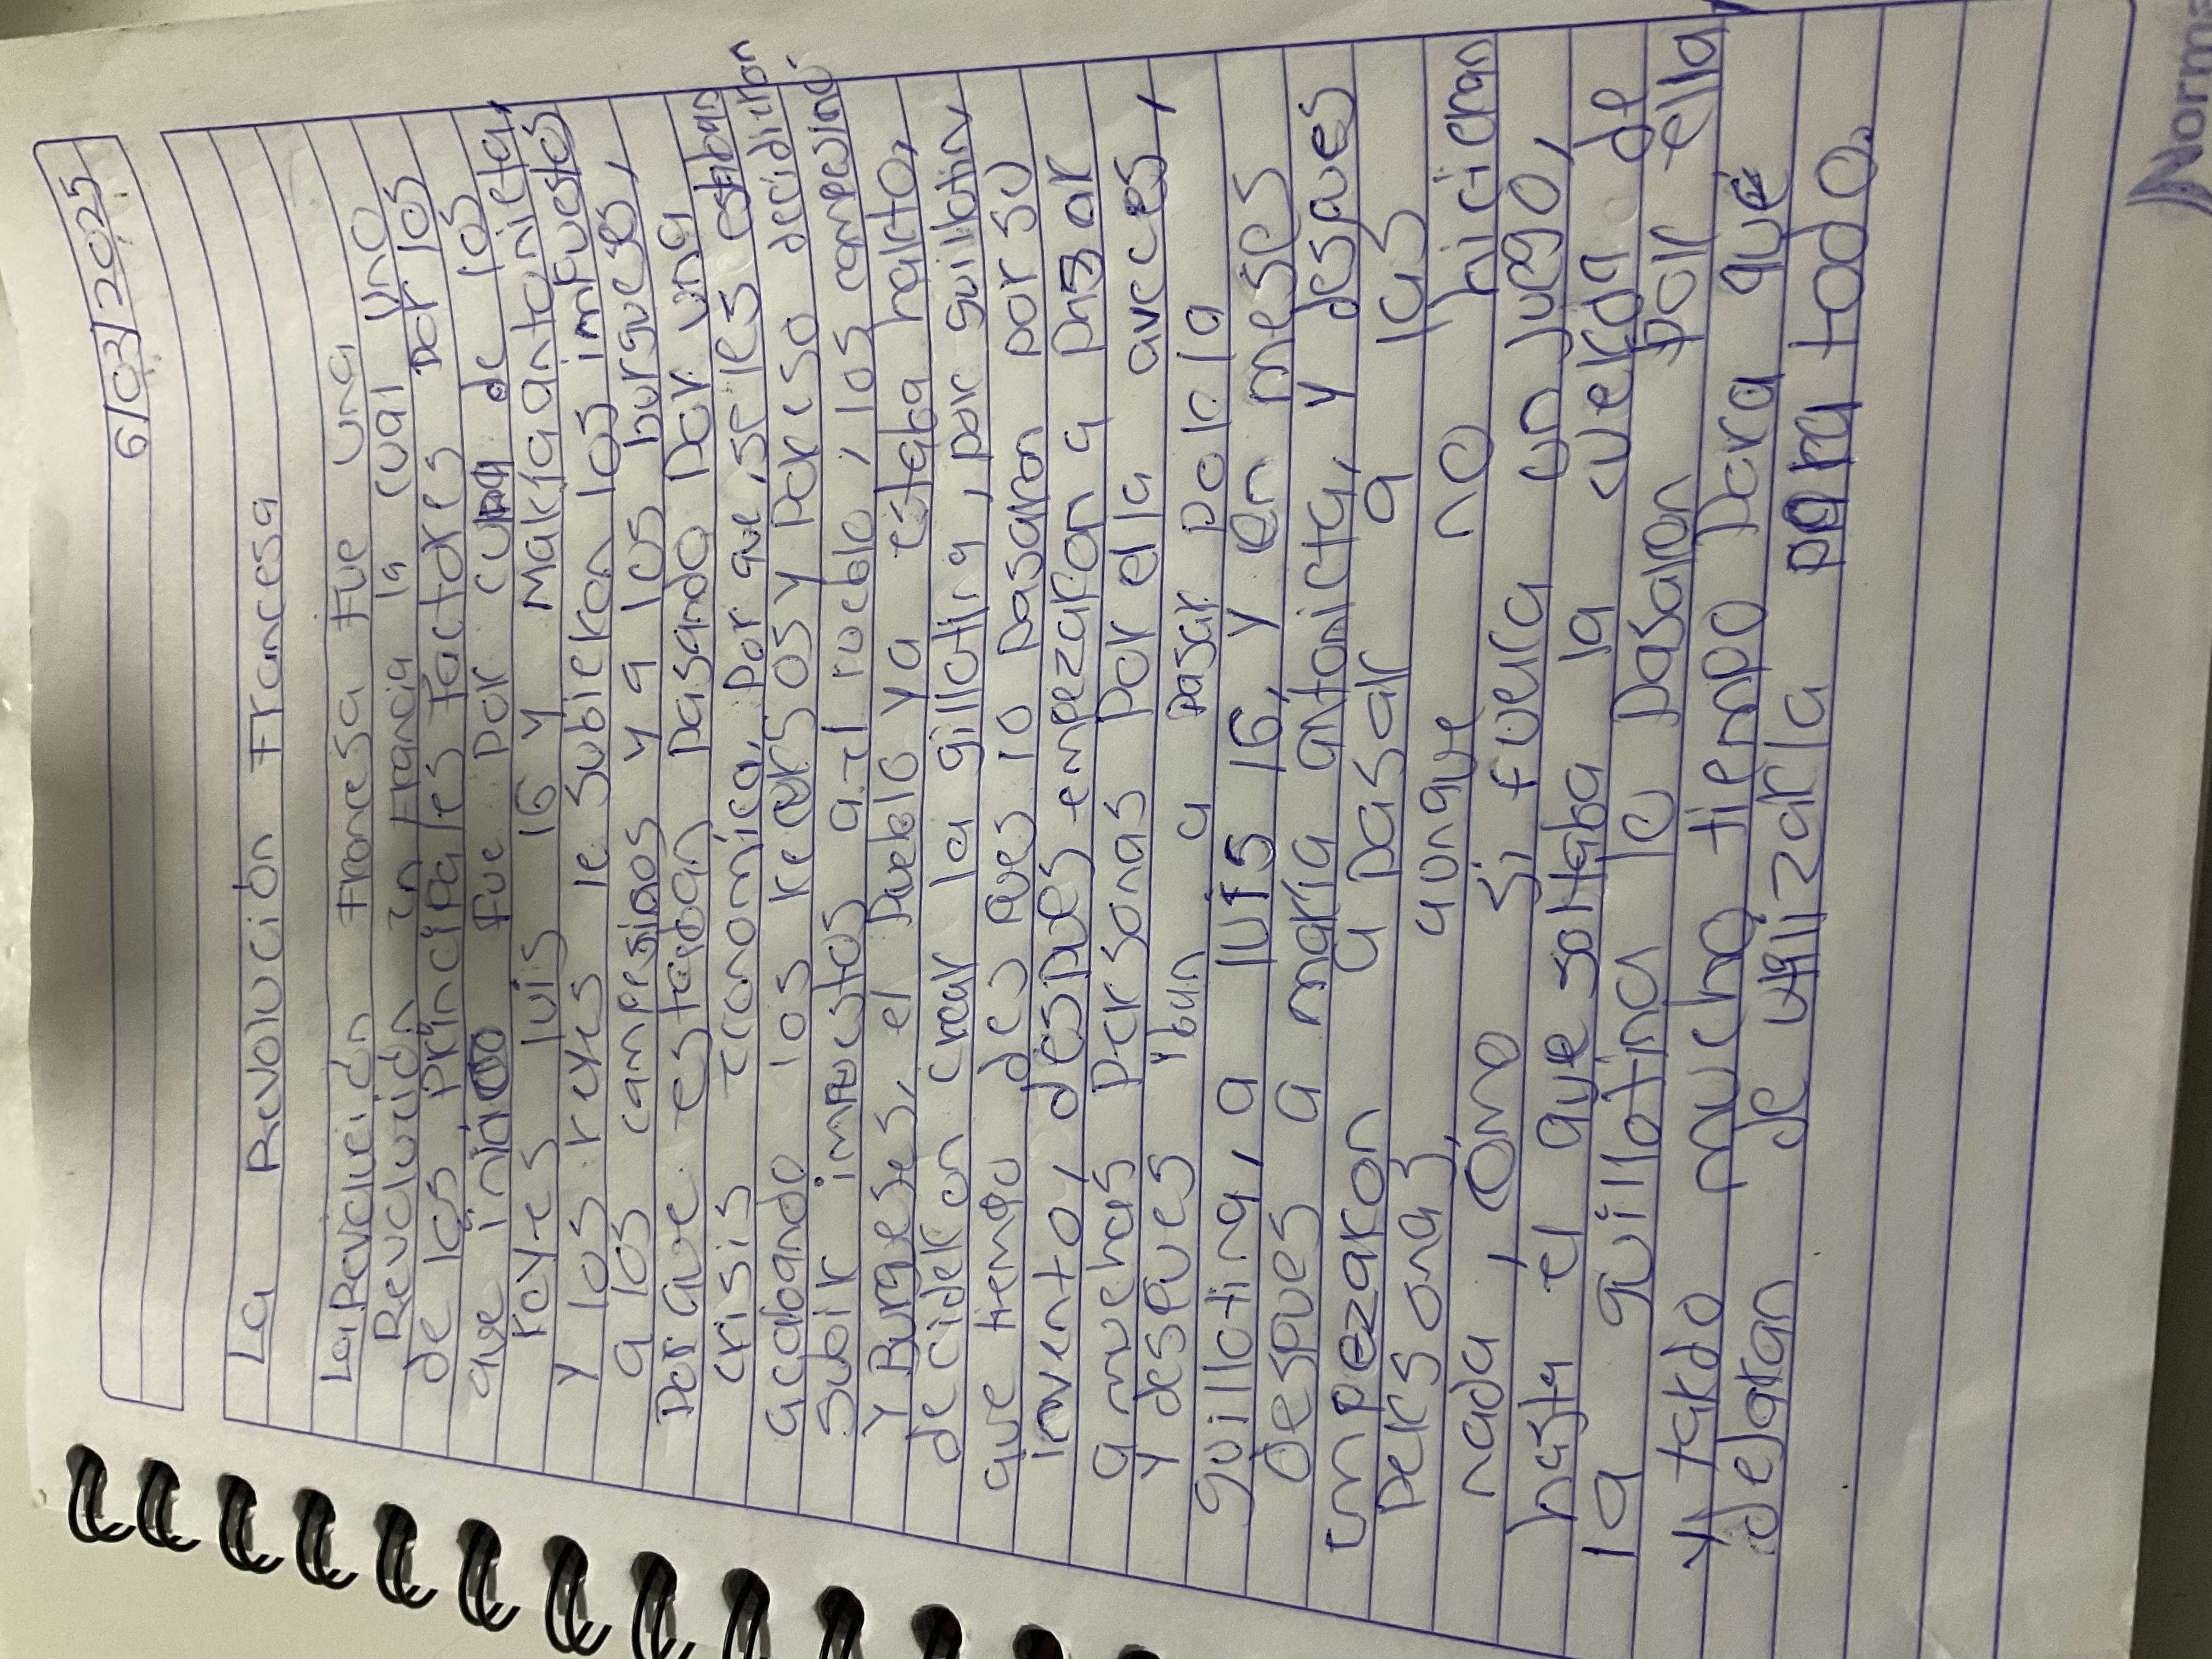 6/03/2025
La Revolución Francesa
La Revolución Francesa fue una
Revolución en Francia la cual uno
de los principales factores por los
que inició fue por culpa de los
reyes luis 16 y María antonieta,
y los reyes le subieron los impuestos
a los campesinos y a los burgueses,
Por que estaban pasando por una
crisis economica, por que, se les estaban
acabando los recursos y por eso decidieron
subir impuestos a el pueblo, los campesinos
y Burgeses, el pueblo ya estaba harto,
decidieron crear la gillotina, por guillotin,
que tiempo des pues lo pasaron por su
invento, despues empezaron a pasar
a muchas personas por ella aveces,
y despues iban a pasar por la
guillotina, a luis 16, y en meses
Despues a maria antonieta, y despues
empezaron a pasar a las
personas, aunque no hicieran
nada, Como si fuera un juego,
hasta el que soltaba la cuerda de
la guillotina lo pasaron por ella
y tardo mucho tiempo para que
dejaran de utilizarla para todo.
Norma